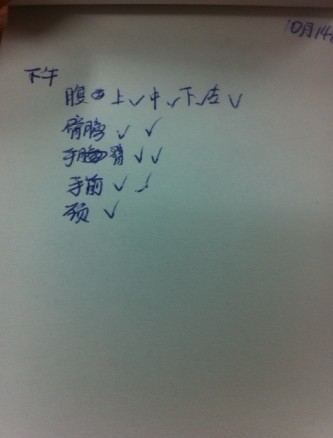 10月14
下午
腹 上✓中✓下✓左✓
臂胸 ✓ ✓
手臂 ✓ ✓
手前 ✓ ✓
颈 ✓